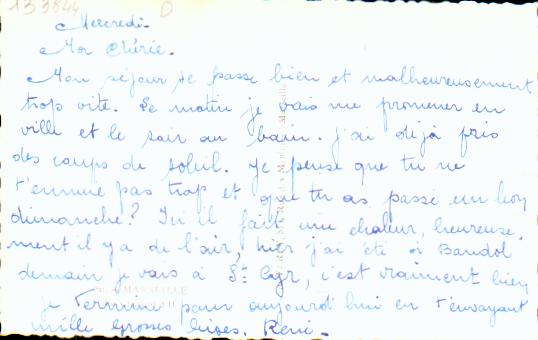 133844 D
Mercredi.
Ma Chérie.
Mon séjour se passe bien et malheureusement
trop vite. Le matin je vais me promener en
ville et le soir au bain. j'ai déjà pris
des coups de soleil. je pense que tu ne
t'ennuie pas trop et que tu as passé un bon
dimanche? Ici il fait une chaleur, heureuse.
ment il y a de l'air, hier j'ai été à Bandol
demain je vais à St Cyr, c'est vraiment bien
je termine pour aujourd'hui en t'envoyant
mille grosses bises. René.
MARSEILLE